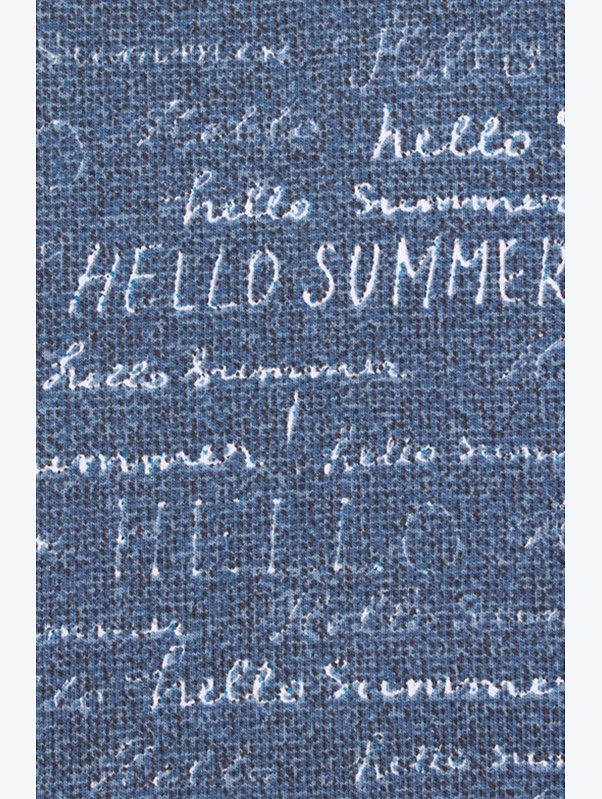 Summer Hello
Hello hello
hello Summer
HELLO SUMMER
hello Summer
ummer hello sum
HELLO
Hello
hello Summer
Hello hello su